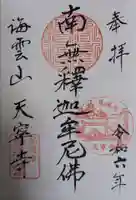 奉拝
令和六年
南無釋迦牟尼佛
海雲山 天寧寺